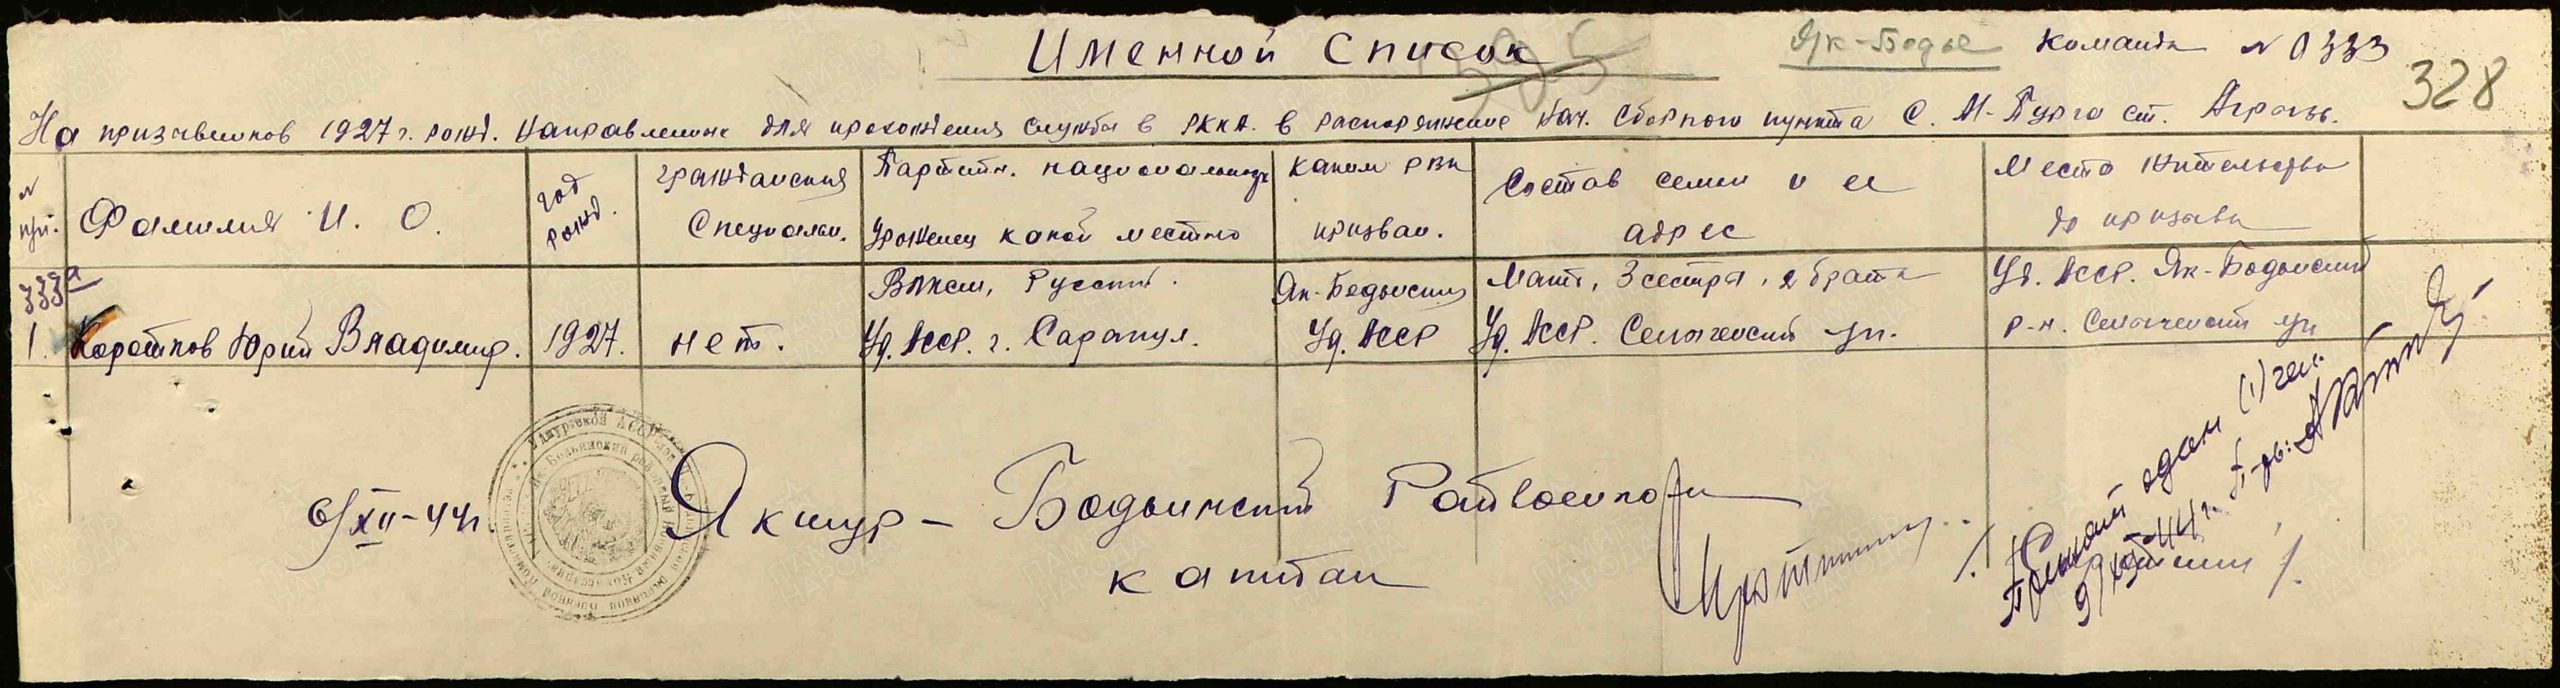 Именной список
Як-Бодья команда № 0333
328
На призывников 1927 г. рожд. направленных для прохождения службы в РККА. в распоряжение нач. сборного пункта С. М-Пурга ст. Агрыз.
№ п/п.
Фамилия И. О.
год рожд.
гражданская специальн.
Партийн. национальность
Уроженец какой местно
каким РВК призван.
Состав семьи и ее адрес
Место жительства до призыва
333а
1. Коротков Юрий Владимир.
1927.
нет.
ВЛКСМ, Русский.
Уд. АССР. г. Сарапул.
Як-Бодьинский
Уд. АССР
Мать, 3 сестры, 2 брата
Уд. АССР. Селычевский ул.
Уд. АССР. Як-Бодьинский
р-н. Селычевский ул
6/XII-44г.
Якшур-Бодьинский Райвоенком
капитан
(1) чел.
9/XII-44 г.